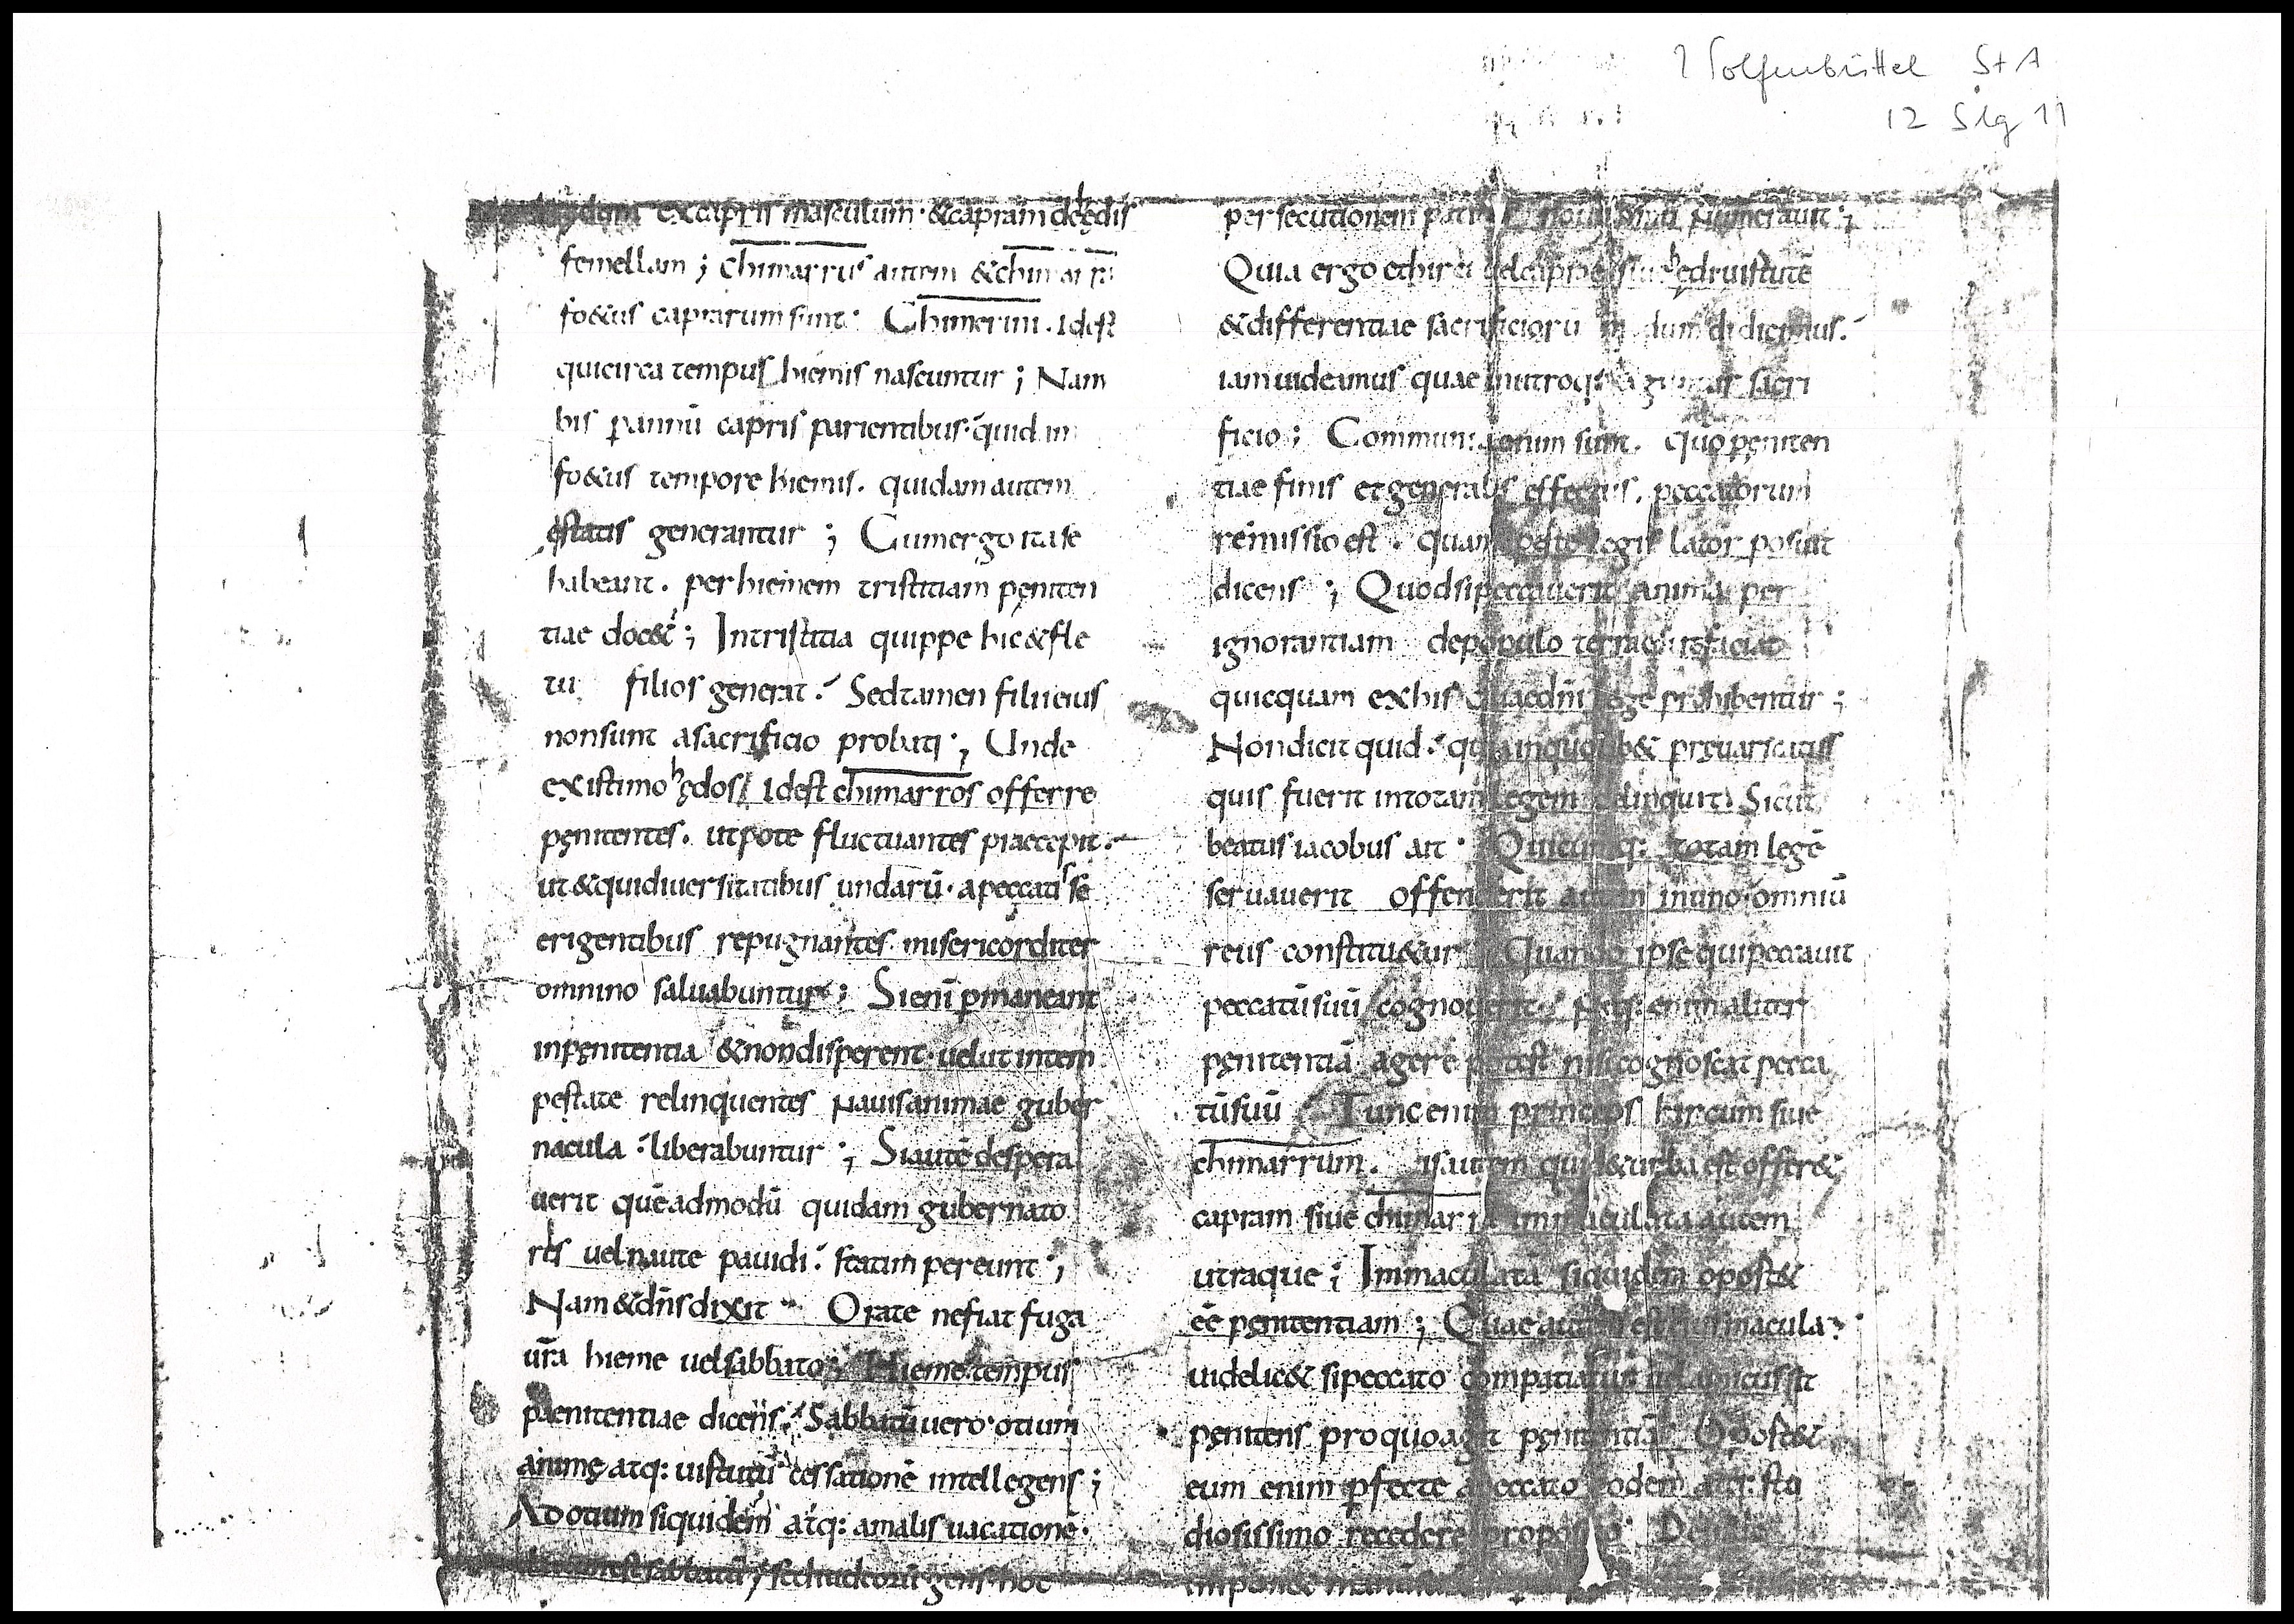 Wolfenbüttel StA
12 Slg 11
excapris masculum · &capram de hędis
femellam ; chimarrus autem &chimarra
fo&us caprarum sunt · Chimerini . Idest
quicirca tempus hiemis nascuntur ; Nam
bis ꝑannū capris parientibus · quidam
fo&us tempore hiemis . quidam autem
ęstatis generantur ; Cumergo itase
habeant . per hiemem tristitiam pęniten
tiae doc& ; Intristitia quippe hic&fle
tu filios generat . Sedtamen filiieius
nonsunt asacrificio probati ; Unde
existimo hędos / Idest chimarros offerre
pęnitentes . utpote fluctuantes praecepit .
ut&quidiuersitatibus undarū · apeccatis se
erigentibus repugnantes misericorditer
omnino saluabuntur ; Sienī ꝑmaneant
inpęnitentia &nondisperent · uelut intem
pestate relinquentes nauisanimae guber
nacula · liberabuntur ; Siautē despera
uerit quēadmodū quidam gubernato
res uel naute pauidi · statim pereunt ;
Nam&dn̄sdixit Orate nefiat fuga
ur̄a hieme uelsabbato Hieme tempus
paenitentiae dicens · Sabbatū uero · otium
animę atq: uirtutū cessationē intellegens ;
Ad otium siquidem atq: amalis uacationē ·
est sabbatū ; sechudeorū gens hoc
persecutionem
Quia ergo &hirci uelcaprae siue hędruirtutē
&differentiae sacrificiorū didicimus .
iam uideamus quae inutroq: aguntur sacri
ficio ; Communia sunt . quo pęniten
tiae finis et generalis effectus . peccatorum
remissio est . quam legis lator posuit
dicens ; Quodsipeccauerit anima per
ignorantiam depopulo terrae utfaciat
quicquam exhis quaedn̄i lege prohibentur ;
Nondicit quid · quia inquolib& pręuaricatus
quis fuerit intotam legem delinquit Sicut
beatus iacobus ait · Quicumq: totam legē
seruauerit offenderit autem inuno · omniū
reus constitu&ur Quando ipse quipeccauit
peccatū suū cognouerit Neq: enim aliter
pęnitentiā agere potest nisicognoscat pecca
tūsuū Tunc enim princeps hircum siue
chimarrum . offer&
capram siue chimarra immaculata autem
utraque ; Immaculata siquidem oport&
eē pęnitentiam ; Quae autem est macula
uidelic& sipeccato compatiatur
pęnitens proquoagit pęnitentiā Oport&
eum enim ꝑfecte apeccato eodem atq: stu
diosissimo recedere proposito